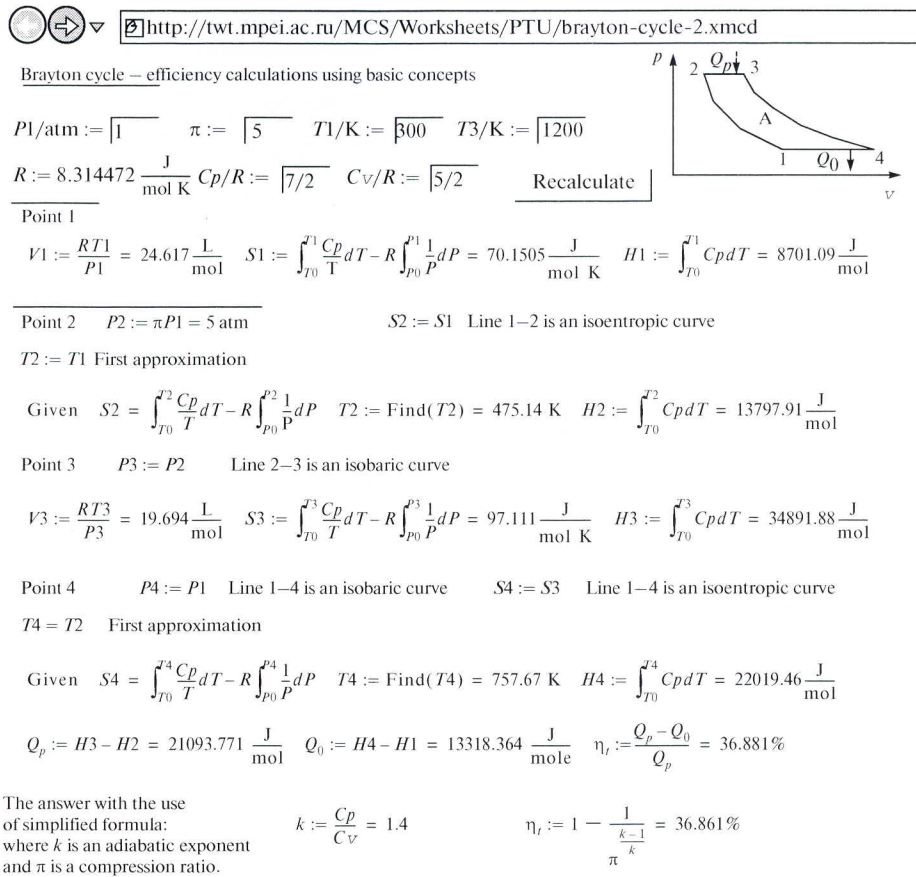 http://twt.mpei.ac.ru/MCS/Worksheets/PTU/brayton-cycle-2.xmcd
Brayton cycle – efficiency calculations using basic concepts
p 2 Qp 3 A 1 Q0 4 v
P1/atm := 1 π := 5 T1/K := 300 T3/K := 1200
R := 8.314472 J/(mol K) Cp/R := 7/2 Cv/R := 5/2 Recalculate
Point 1
V1 := RT1/P1 = 24.617 L/mol S1 := ∫_T0^T1 Cp/T dT – R ∫_P0^P1 1/P dP = 70.1505 J/(mol K) H1 := ∫_T0^T1 CpdT = 8701.09 J/mol
Point 2 P2 := πP1 = 5 atm S2 := S1 Line 1–2 is an isoentropic curve
T2 := T1 First approximation
Given S2 = ∫_T0^T2 Cp/T dT – R ∫_P0^P2 1/P dP T2 := Find(T2) = 475.14 K H2 := ∫_T0^T2 CpdT = 13797.91 J/mol
Point 3 P3 := P2 Line 2–3 is an isobaric curve
V3 := RT3/P3 = 19.694 L/mol S3 := ∫_T0^T3 Cp/T dT – R ∫_P0^P3 1/P dP = 97.111 J/(mol K) H3 := ∫_T0^T3 CpdT = 34891.88 J/mol
Point 4 P4 := P1 Line 1–4 is an isobaric curve S4 := S3 Line 1–4 is an isoentropic curve
T4 = T2 First approximation
Given S4 = ∫_T0^T4 Cp/T dT – R ∫_P0^P4 1/P dP T4 := Find(T4) = 757.67 K H4 := ∫_T0^T4 CpdT = 22019.46 J/mol
Qp := H3 – H2 = 21093.771 J/mol Q0 := H4 – H1 = 13318.364 J/mole ηt := (Qp – Q0)/Qp = 36.881%
The answer with the use
of simplified formula:
where k is an adiabatic exponent
and π is a compression ratio.
k := Cp/Cv = 1.4 ηt := 1 – 1/π^((k – 1)/k) = 36.861%